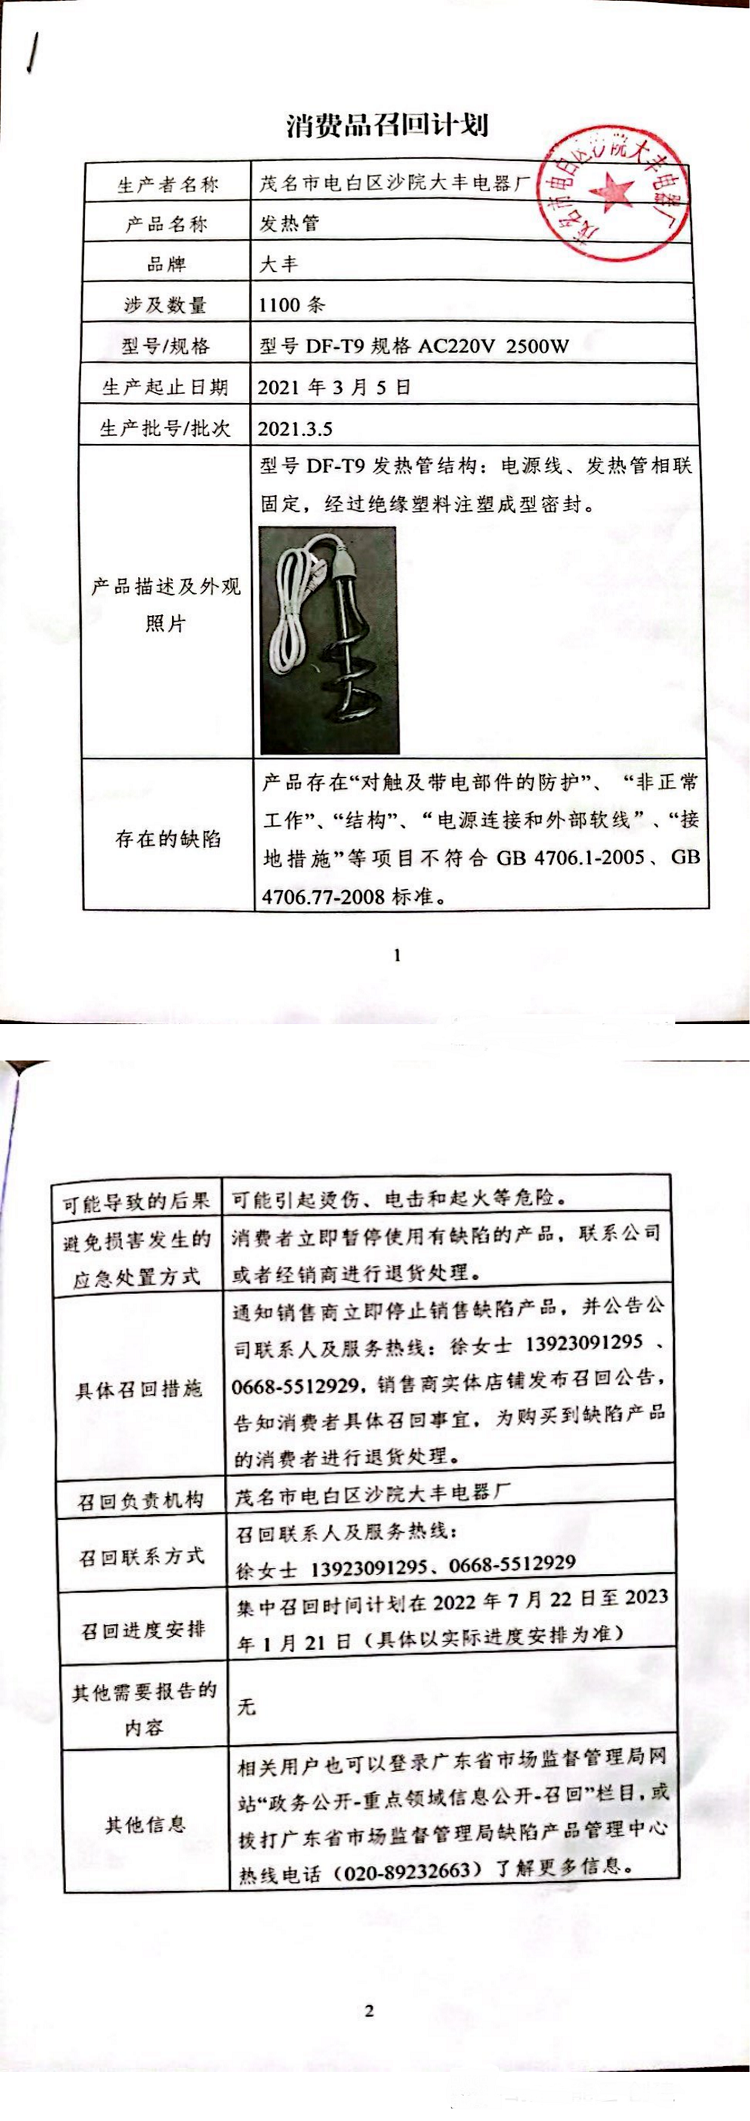 消费品召回计划
茂名市电白区沙院大丰电器厂
生产者名称 茂名市电白区沙院大丰电器厂
产品名称 发热管
品牌 大丰
涉及数量 1100 条
型号/规格 型号 DF-T9 规格 AC220V 2500W
生产起止日期 2021 年 3 月 5 日
生产批号/批次 2021.3.5
产品描述及外观
照片
型号 DF-T9 发热管结构：电源线、发热管相联
固定，经过绝缘塑料注塑成型密封。
存在的缺陷
产品存在“对触及带电部件的防护”、 “非正常
工作”、“结构”、“电源连接和外部软线”、“接
地措施”等项目不符合 GB 4706.1-2005、GB
4706.77-2008 标准。
1
可能导致的后果 可能引起烫伤、电击和起火等危险。
避免损害发生的
应急处置方式
消费者立即暂停使用有缺陷的产品，联系公司
或者经销商进行退货处理。
具体召回措施
通知销售商立即停止销售缺陷产品，并公告公
司联系人及服务热线：徐女士 13923091295 、
0668-5512929，销售商实体店铺发布召回公告，
告知消费者具体召回事宜，为购买到缺陷产品
的消费者进行退货处理。
召回负责机构 茂名市电白区沙院大丰电器厂
召回联系方式
召回联系人及服务热线：
徐女士 13923091295、0668-5512929
召回进度安排
集中召回时间计划在 2022 年 7 月 22 日至 2023
年 1 月 21 日（具体以实际进度安排为准）
其他需要报告的
内容
无
其他信息
相关用户也可以登录广东省市场监督管理局网
站“政务公开-重点领域信息公开-召回”栏目，或
拨打广东省市场监督管理局缺陷产品管理中心
热线电话（020-89232663）了解更多信息。
2